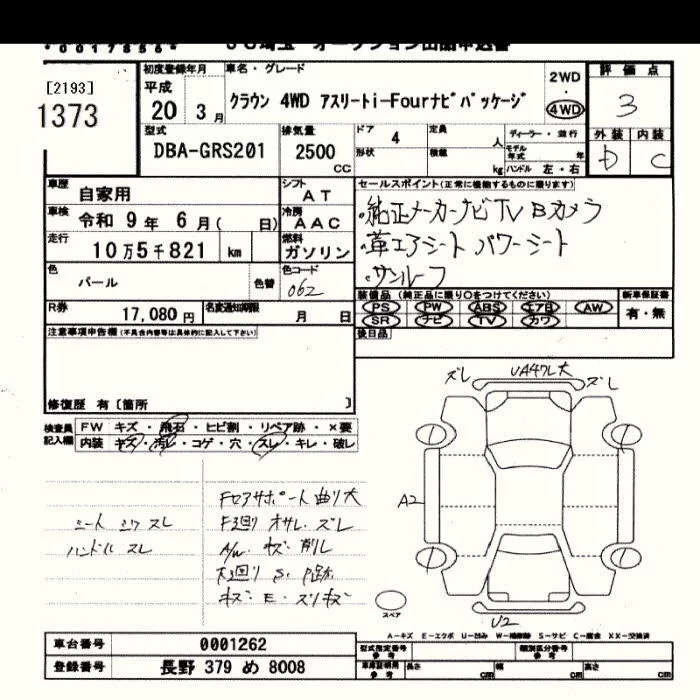 *0017856*
JU埼玉 オークション出品申込書
[2193]
1373
初度登録年月
平成
20 3月
車名・グレード
クラウン 4WD アスリートi-Fourナビパッケージ
2WD
・
4WD
評価点
3
外装 内装
D C
型式
DBA-GRS201
排気量
2500
CC
ドア 4
形状
定員 人
積載 kg
ディーラー・並行
モデル年式 年
ハンドル 左・右
車歴
自家用
シフト
AT
車検
令和 9年 6月( 日)
冷房
AAC
走行
10万5千821 km
燃料
ガソリン
色
パール
色替
色コード
062
R券
17,080円
名変通知期限
月 日
セールスポイント(正常に機能するものに限ります)
・純正メーカーナビ TV Bカメラ
・革エアシート パワーシート
・サンルーフ
装備品 (純正品に限り○をつけてください)
PS PW ABS エアB AW
SR ナビ TV カワ
新車保証書
有・無
後日品
注意事項申告欄(不具合内容等は具体的に記入して下さい)
修復歴 有 [箇所 ]
検査員記入欄
FW キズ・飛石・ヒビ割・リペア跡・×要
内装 キズ・汚レ・コゲ・穴・スレ・キレ・破レ
シート シワ スレ
ハンドル スレ
Fコアサポート 曲リ大
F廻リ オサレ・ズレ
A/W キズ・削レ
下廻リ S・P跡
キズ・E・スリキズ
ズレ
UA47レ大
ズレ
A2
U2
スペア
A-キズ E-エクボ U-凹み W-補修跡 S-サビ C-腐食 XX-交換済
車台番号
0001262
登録番号
長野 379 め 8008
型式指定番号
参考
類別区分番号
参考
車庫証明用
参考
長さ cm
幅 cm
高さ cm